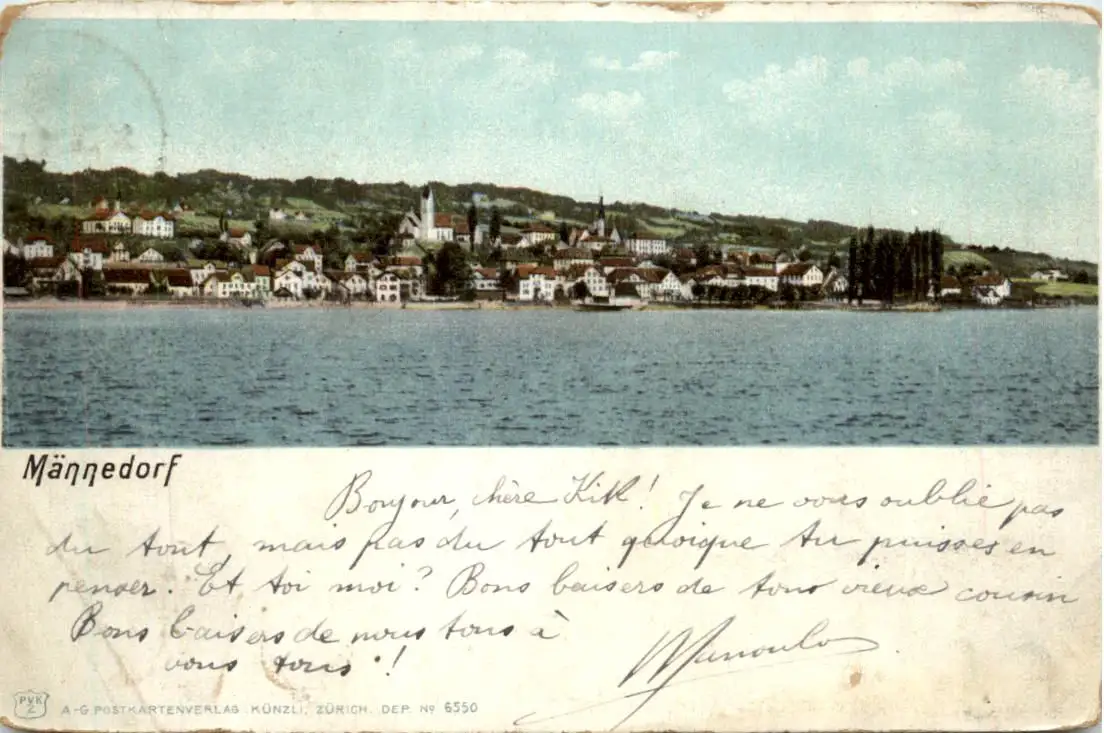 Männedorf
Bonjour, chère Kikl! Je ne vous oublie pas
du tout, mais pas du tout quoique tu puisses en
penser. Et toi moi? Bons baisers de tons vieux cousin
Bons baisers de nous tous à
vous tous!
Manoulo
PVK
Z
A-G. POSTKARTENVERLAG KÜNZLI, ZÜRICH. DEP. Nº 6550